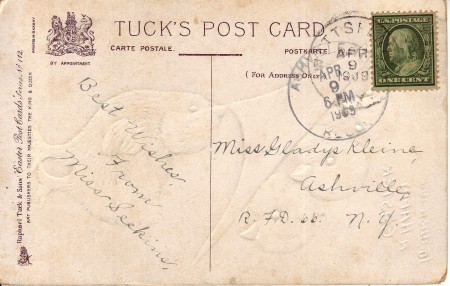 TUCK'S POST CARD.
CARTE POSTALE.
POSTKARTE.
BY APPOINTMENT.
(For Address Only)
Raphael Tuck & Sons' "Easter" Post Cards Series No. 112.
ART PUBLISHERS TO THEIR MAJESTIES THE KING & QUEEN
Best Wishes,
From
Miss Seekins,
APR
9
1909
APR
9
6 PM
1909
REC'D
U.S. POSTAGE
ONE CENT
Miss Gladys Kleine,
Ashville,
R.F.D. 66. N.Y.